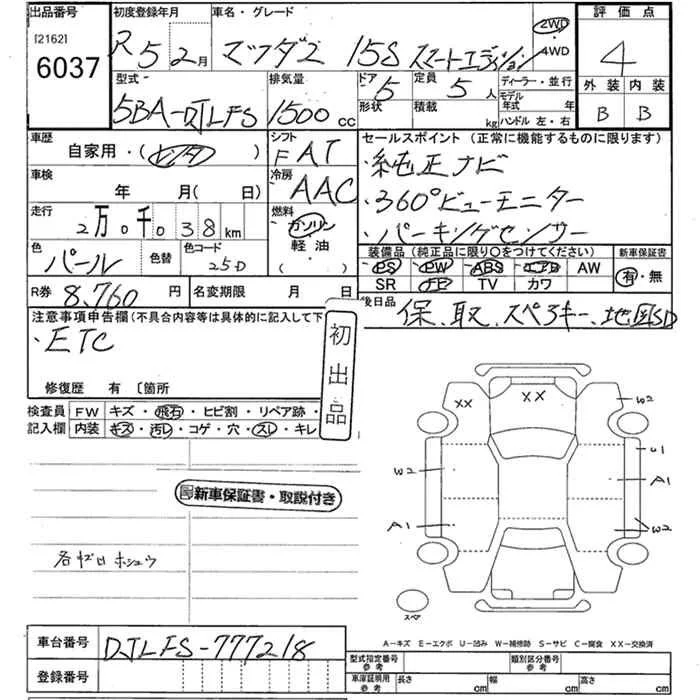 出品番号 初度登録年月 車名・グレード 評価点
[2162]
6037
R5 2月 マツダ2 15S スマートエディション 2WD・4WD 4
型式 排気量 ドア 定員 ディーラー・並行 外装 内装
5BA-DJLFS 1500cc 5 5人 モデル年式 年
形状 積載 kg ハンドル 左・右 B B
車歴 シフト セールスポイント(正常に機能するものに限ります)
自家用・(レンタ) FAT ・純正ナビ
車検 冷房
年 月(日) AAC ・360°ビューモニター
走行 燃料
2万0千038km ガソリン・軽油・( ) ・パーキングセンサー
色 色替 色コード 装備品(純正品に限り○をつけてください) 新車保証書
パール 25D PS PW ABS エアB AW 有・無
SR TV カワ
R券 8,760円 名変期限 月 日 後日品 保、取、スペアキー、地図SD
注意事項申告欄(不具合内容等は具体的に記入して下
・ETC
初出品
修復歴 有 〔箇所
検査員 FW キズ・飛石・ヒビ割・リペア跡・
記入欄 内装 キズ・汚レ・コゲ・穴・スレ・キレ
新車保証書・取説付き
各ゼロホシュウ
XX XX W2
U1
W2 A1
A1 W2
スペア
A-キズ E-エクボ U-凹み W-補修跡 S-サビ C-腐食 XX-交換済
車台番号 DJLFS-777218 型式指定番号 参考 類別区分番号 参考
登録番号 車庫証明用 参考 長さ cm 幅 cm 高さ cm